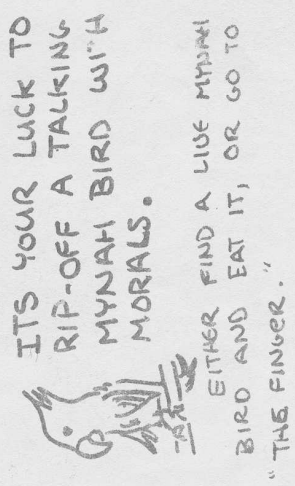 ITS YOUR LUCK TO
RIP-OFF A TALKING
MYNAH BIRD WITH
MORALS.
EITHER FIND A LIVE MYNAH
BIRD AND EAT IT, OR GO TO
"THE FINGER."